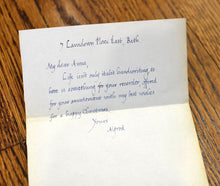 7 Lansdown Place East, Bath.
My dear Anna,
Life isn't only italic handwriting so
here is something for your recorder, offered
for your amusement with my best wishes
for a happy Christmas.
Yours
Alfred